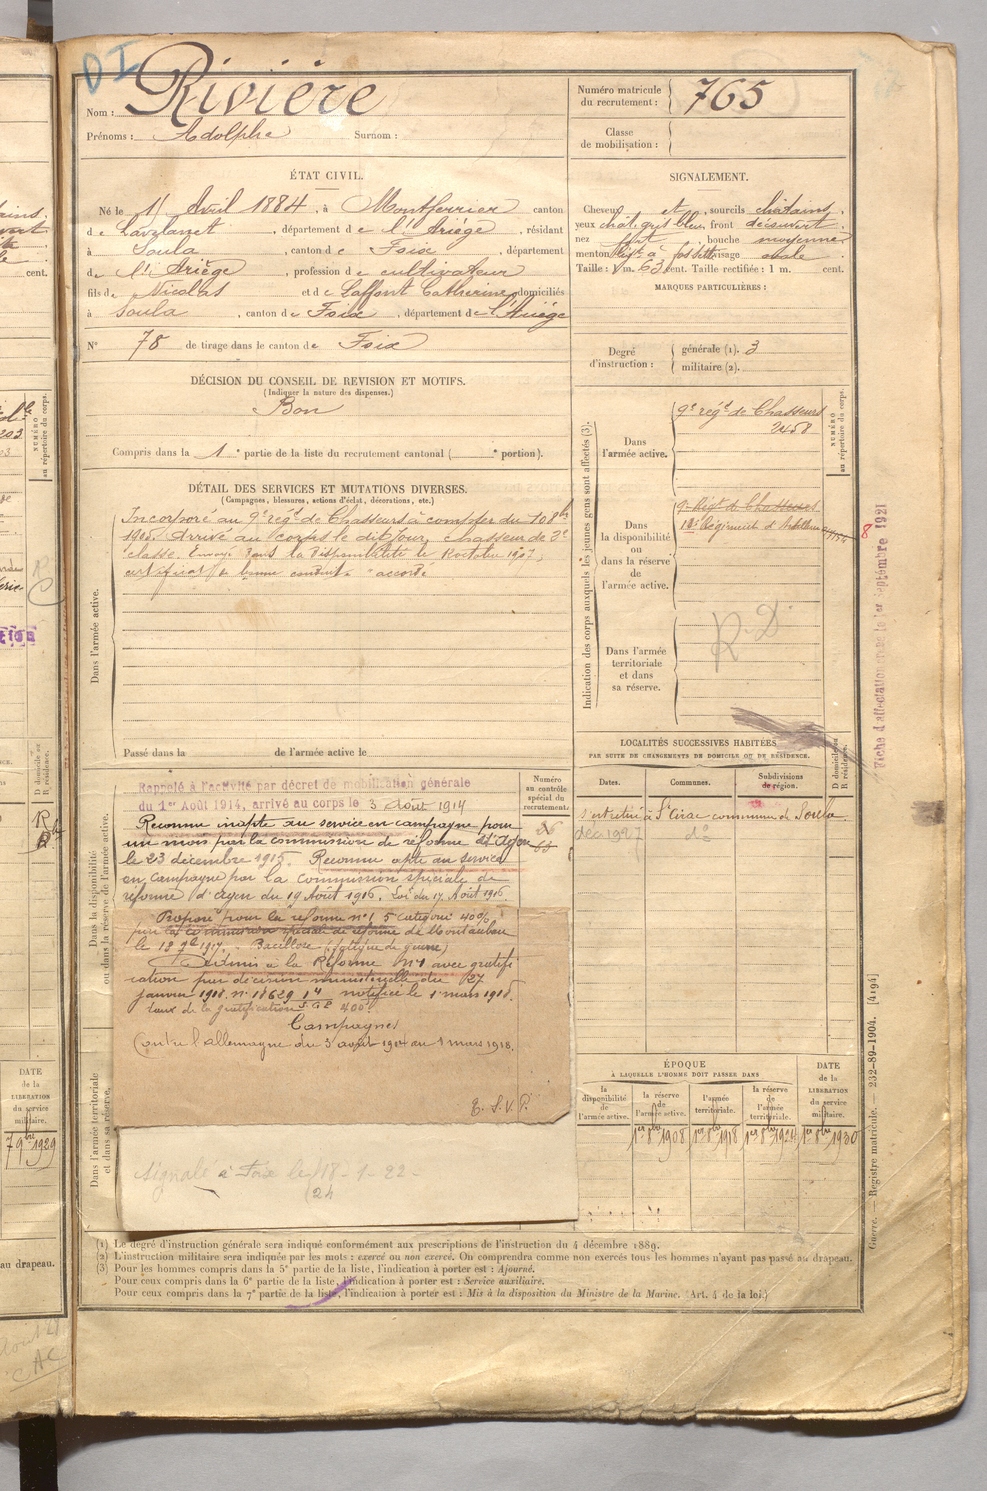 DI
Nom : Rivière
Prénoms : Adolphe Surnom :
Numéro matricule
du recrutement : 765
Classe
de mobilisation :
ÉTAT CIVIL.
Né le 1 Avril 1884, à Montferrier canton
de Lavelanet, département de l'Ariége, résidant
à Soula, canton de Foix, département
de l'Ariège, profession de cultivateur
fils de Nicolas et de Laffont Catherine domiciliés
à Soula, canton de Foix, département de l'Ariége
N° 78 de tirage dans le canton de Foix
SIGNALEMENT.
Cheveux et sourcils châtains
yeux chât. gris bleu, front découvert
nez fort, bouche moyenne
menton à fossette visage ovale
Taille : 1 m. 63 cent. Taille rectifiée : 1 m. cent.
MARQUES PARTICULIÈRES :
Degré
d'instruction :
générale (1). 3
militaire (2).
DÉCISION DU CONSEIL DE REVISION ET MOTIFS.
(Indiquer la nature des dispenses.)
Bon
Compris dans la 1e partie de la liste du recrutement cantonal ( e portion).
DÉTAIL DES SERVICES ET MUTATIONS DIVERSES.
(Campagnes, blessures, actions d'éclat, décorations, etc.)
Dans l'armée active.
Incorporé au 9e régt de Chasseurs à compter du 10 8bre
1905. Arrivé au corps le dit jour, chasseur de 2e
classe. Envoyé dans la disponibilité le octobre 1907,
certificat de bonne conduite accordé
Passé dans la de l'armée active le
Indication des corps auxquels les jeunes gens sont affectés (3).
NUMÉRO
au répertoire du corps.
Dans
l'armée active.
9e régt de Chasseurs
2458
Dans
la disponibilité
ou
dans la réserve
de
l'armée active.
9e Régt de Chasseurs
Régiment d'Artillerie
8
Dans l'armée
territoriale
et dans
sa réserve.
R.D
Fiche d'affectation le 1er Septembre 1921
LOCALITÉS SUCCESSIVES HABITÉES
PAR SUITE DE CHANGEMENTS DE DOMICILE OU DE RÉSIDENCE.
Dates.
Communes.
Subdivisions
de région.
D domicile ou
R résidence.
s'est retiré à St Cirac commune de Soula
déc 1927 do
Dans la disponibilité
ou dans la réserve de l'armée active.
Numéro
au contrôle
spécial du
recrutement.
Rappelé à l'activité par décret de mobilisation générale
du 1er Août 1914, arrivé au corps le 3 Août 1914
Reconnu inapte au service en campagne pour
un mois par la commission de réforme d'Agen
le 23 décembre 1915. Reconnu apte au service
en campagne par la commission spéciale de
réforme d'Agen du 19 Août 1916. Loi du 17 Août 1916.
Proposé pour la réforme n° 1, 5 catégorie 40%
par la commission spéciale de réforme de Montauban
le 18 1917. Bacillose (fatigue de guerre)
Admis à la Réforme N°1 avec gratifi
cation par décision ministérielle du 27
janvier 1918. n° 18629 notifiée le 1 mars 1918.
taux de la gratification 400f
Campagnes
Contre l'allemagne du 3 août 1914 au 1 mars 1918.
T. S. V. P.
Dans l'armée territoriale
et dans sa réserve.
Signalé à Foix le 18 - 1 - 22 -
24
ÉPOQUE
À LAQUELLE L'HOMME DOIT PASSER DANS
la
disponibilité
de
l'armée active.
la réserve
de
l'armée active.
l'armée
territoriale.
la réserve
de
l'armée
territoriale.
DATE
de la
LIBÉRATION
du service
militaire.
1er 8bre 1908
1er 8bre 1918
1er 8bre 1924
1er 8bre 1930
(1) Le degré d'instruction générale sera indiqué conformément aux prescriptions de l'instruction du 4 décembre 1889.
(2) L'instruction militaire sera indiquée par les mots : exercé ou non exercé. On comprendra comme non exercés tous les hommes n'ayant pas passé au drapeau.
(3) Pour les hommes compris dans la 5e partie de la liste, l'indication à porter est : Ajourné.
Pour ceux compris dans la 6e partie de la liste, l'indication à porter est : Service auxiliaire.
Pour ceux compris dans la 7e partie de la liste, l'indication à porter est : Mis à la disposition du Ministre de la Marine. (Art. 4 de la loi.)
Guerre. — Registre matricule. — 232-89-1904. [4194]
cent.
NUMÉRO
au répertoire du corps.
D domicile ou
R résidence.
R
DATE
de la
LIBÉRATION
du service
militaire.
7 9bre 1929
au drapeau.